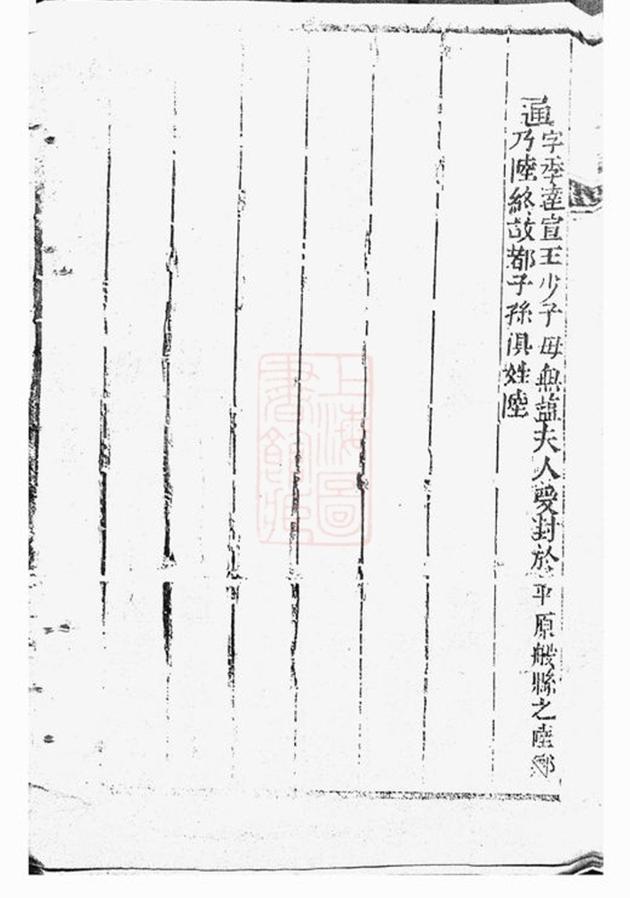 通字季達宣王少子母無鹽夫人受封於平原般縣之陸鄉
乃陸終故都子孫俱姓陸
上海圖
書館藏